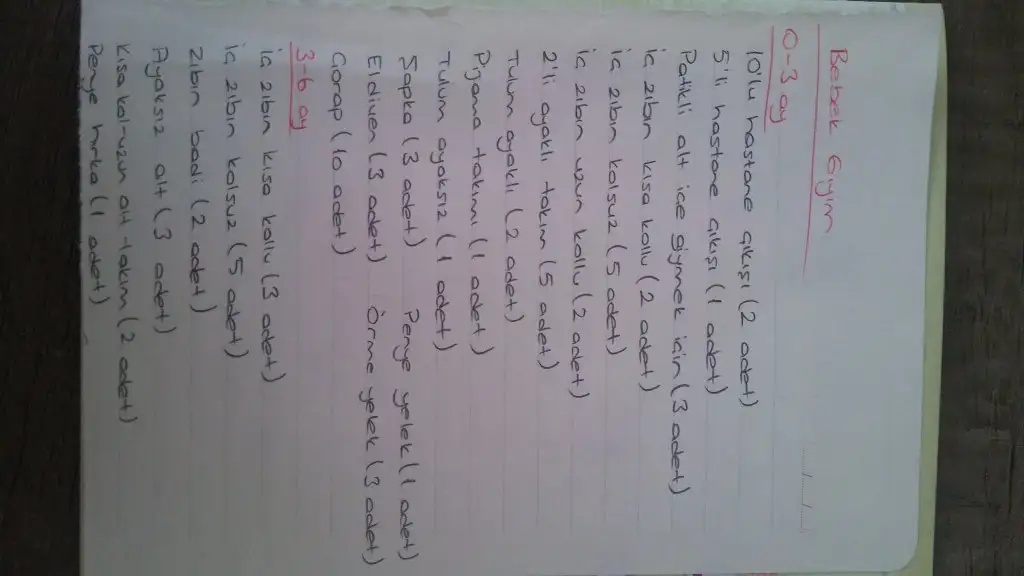 Bebek Giyim
0-3 ay
10'lu hastane çıkışı (2 adet)
5'li hastane çıkışı (1 adet)
Patikli alt içe giymek için (3 adet)
iç zıbın kısa kollu (2 adet)
iç zıbın kolsuz (5 adet)
iç zıbın uzun kollu (2 adet)
2'li ayaklı takım (5 adet)
Tulum ayaklı (2 adet)
Pijama takımı (1 adet)
Tulum ayaksız (1 adet)
Şapka (3 adet) Penye yelek (1 adet)
Eldiven (3 adet) Örme yelek (3 adet)
Çorap (10 adet)
3-6 ay
iç zıbın kısa kollu (3 adet)
iç zıbın kolsuz (5 adet)
Zıbın badi (2 adet)
Ayaksız alt (3 adet)
Kısa kol-uzun alt takım (2 adet)
Penye hırka (1 adet)